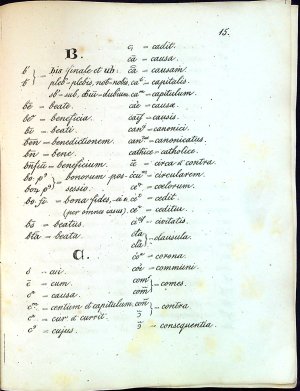 15.
B.
b' } = bis finale et ub.
b' } pleb' = plebis, nob = nobis,
sb' = sub, dbiu = dubium
bē = beate
bē = beneficia.
bī = beati
bn̄ = benedictionem.
bn̄ = bene.
bnf̄iū = beneficium.
bo. pº } = bonorum pos-
boq pº } sessio.
bo. fi = bona fides,
(per omnes casus).
bs̄ = beatus.
btā = beata.
C.
c = cui.
c̄ = cum.
cª = causa.
= centum et capitulum.
cʳ = cur et currit.
cº = cujus.
c, = cadit.
cā = causa
cā = causam.
caᵗ = capitalis.
caᵐ = capitulum.
cāe = causa.
= causis.
canᶜ = canonici.
= canonicatus.
cathce = catholice.
c̄c = circa et contra.
= circularem.
= coelorum.
= cedit.
= ceditur.
= civitatis.
cla } = clausula.
cla }
= corona.
= communi.
com } = comes.
com }
com } = contra
= consequentia.